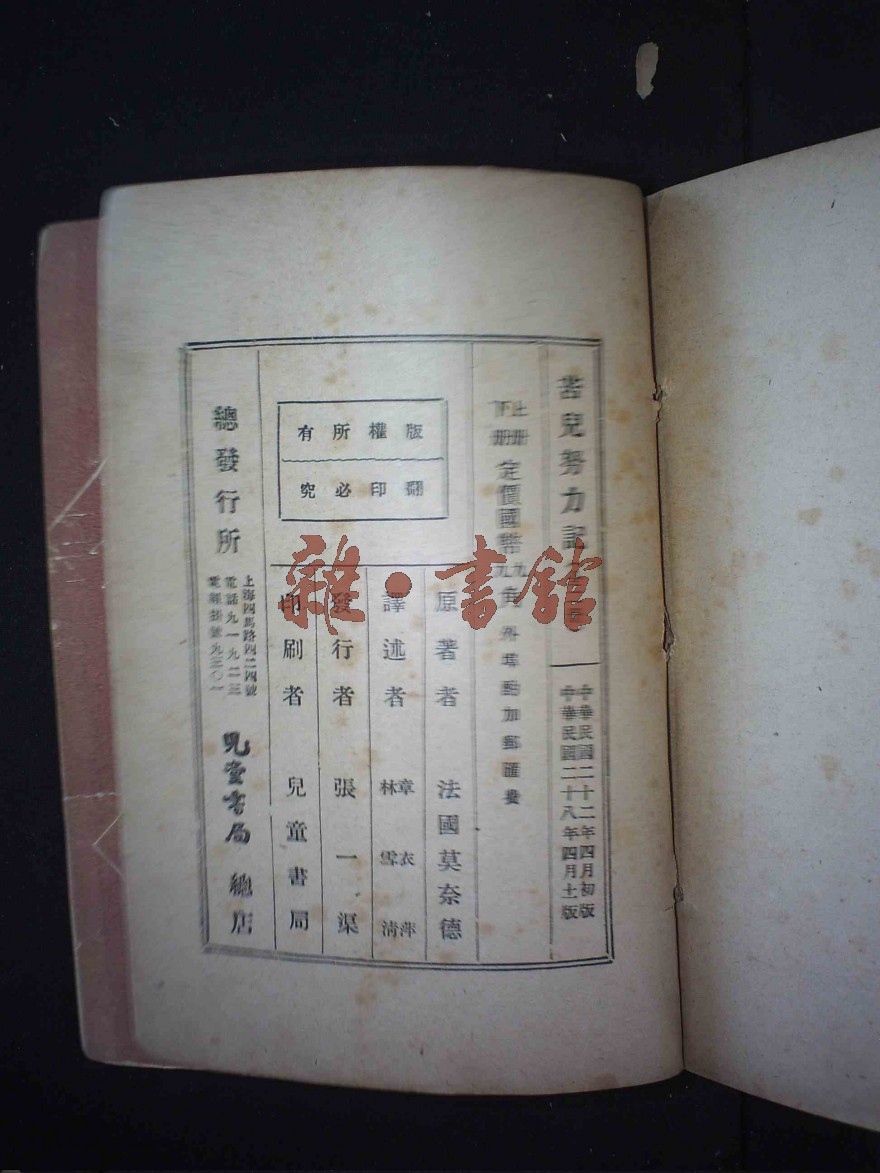 苦兒努力記
中華民國二十二年四月初版
中華民國二十八年四月土版
上册
下册
定價國幣
外埠酌加郵匯費
版權所有
翻印必究
原著者 法國莫奈德
譯述者 章衣萍
林雪清
發行者 張一渠
印刷者 兒童書局
總發行所
上海四馬路四二四號
電話九一九二三
電報掛號九三〇一
兒童書局總店
雜·書館